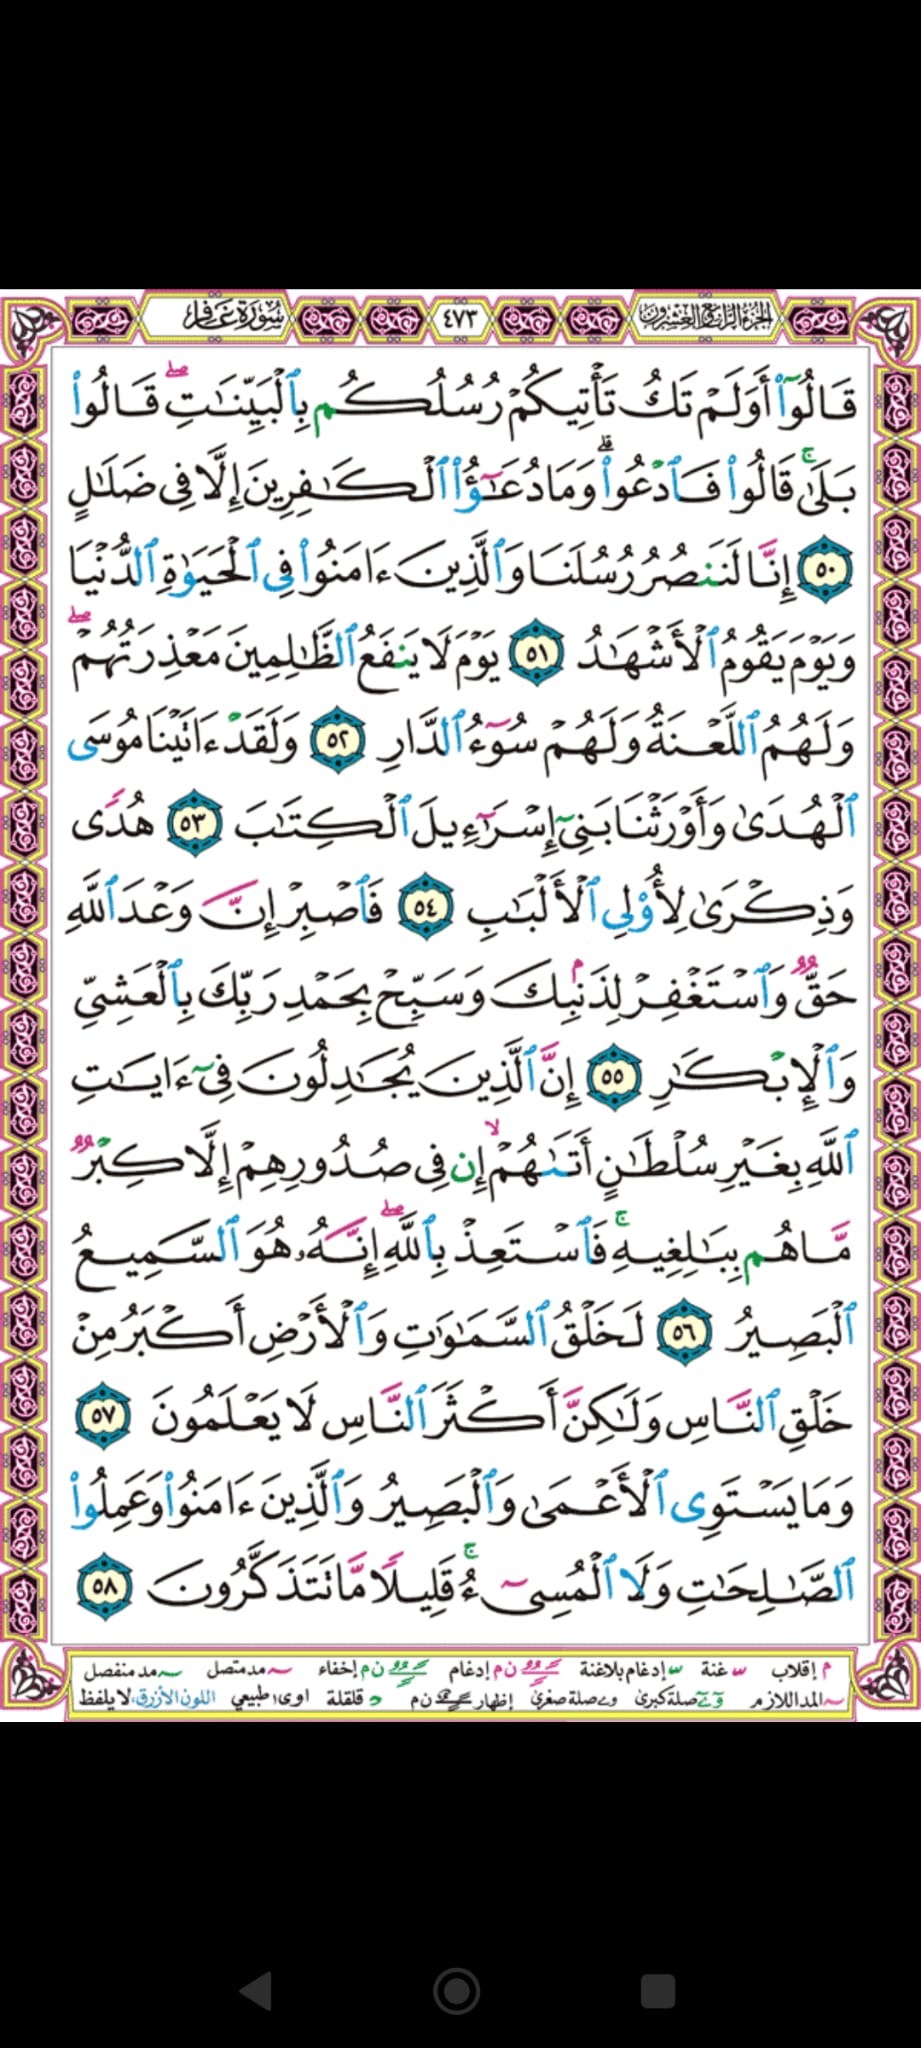 الجزء الرابع والعشرون
٤٧٣
سورة غافر
قَالُوٓا۟ أَوَلَمْ تَكُ تَأْتِيكُمْ رُسُلُكُم بِٱلْبَيِّنَٰتِ ۖ قَالُوا۟
بَلَىٰ ۚ قَالُوا۟ فَٱدْعُوا۟ ۗ وَمَا دُعَٰٓؤُا۟ ٱلْكَٰفِرِينَ إِلَّا فِى ضَلَٰلٍ
٥٠ إِنَّا لَنَنصُرُ رُسُلَنَا وَٱلَّذِينَ ءَامَنُوا۟ فِى ٱلْحَيَوٰةِ ٱلدُّنْيَا
وَيَوْمَ يَقُومُ ٱلْأَشْهَٰدُ ٥١ يَوْمَ لَا يَنفَعُ ٱلظَّٰلِمِينَ مَعْذِرَتُهُمْ ۖ
وَلَهُمُ ٱللَّعْنَةُ وَلَهُمْ سُوٓءُ ٱلدَّارِ ٥٢ وَلَقَدْ ءَاتَيْنَا مُوسَى
ٱلْهُدَىٰ وَأَوْرَثْنَا بَنِىٓ إِسْرَٰٓءِيلَ ٱلْكِتَٰبَ ٥٣ هُدًى
وَذِكْرَىٰ لِأُو۟لِى ٱلْأَلْبَٰبِ ٥٤ فَٱصْبِرْ إِنَّ وَعْدَ ٱللَّهِ
حَقٌّ وَٱسْتَغْفِرْ لِذَنۢبِكَ وَسَبِّحْ بِحَمْدِ رَبِّكَ بِٱلْعَشِىِّ
وَٱلْإِبْكَٰرِ ٥٥ إِنَّ ٱلَّذِينَ يُجَٰدِلُونَ فِىٓ ءَايَٰتِ
ٱللَّهِ بِغَيْرِ سُلْطَٰنٍ أَتَىٰهُمْ ۙ إِن فِى صُدُورِهِمْ إِلَّا كِبْرٌ
مَّا هُم بِبَٰلِغِيهِ ۚ فَٱسْتَعِذْ بِٱللَّهِ ۖ إِنَّهُۥ هُوَ ٱلسَّمِيعُ
ٱلْبَصِيرُ ٥٦ لَخَلْقُ ٱلسَّمَٰوَٰتِ وَٱلْأَرْضِ أَكْبَرُ مِنْ
خَلْقِ ٱلنَّاسِ وَلَٰكِنَّ أَكْثَرَ ٱلنَّاسِ لَا يَعْلَمُونَ ٥٧
وَمَا يَسْتَوِى ٱلْأَعْمَىٰ وَٱلْبَصِيرُ وَٱلَّذِينَ ءَامَنُوا۟ وَعَمِلُوا۟
ٱلصَّٰلِحَٰتِ وَلَا ٱلْمُسِىٓءُ ۚ قَلِيلًا مَّا تَتَذَكَّرُونَ ٥٨
م إقلاب غنة إدغام بلاغنة ن م إدغام ن م إخفاء مد متصل مد منفصل
المد اللازم صلة كبرى صلة صغرى إظهار ن م قلقلة اوى طبيعي اللون الأزرق: لا يلفظ